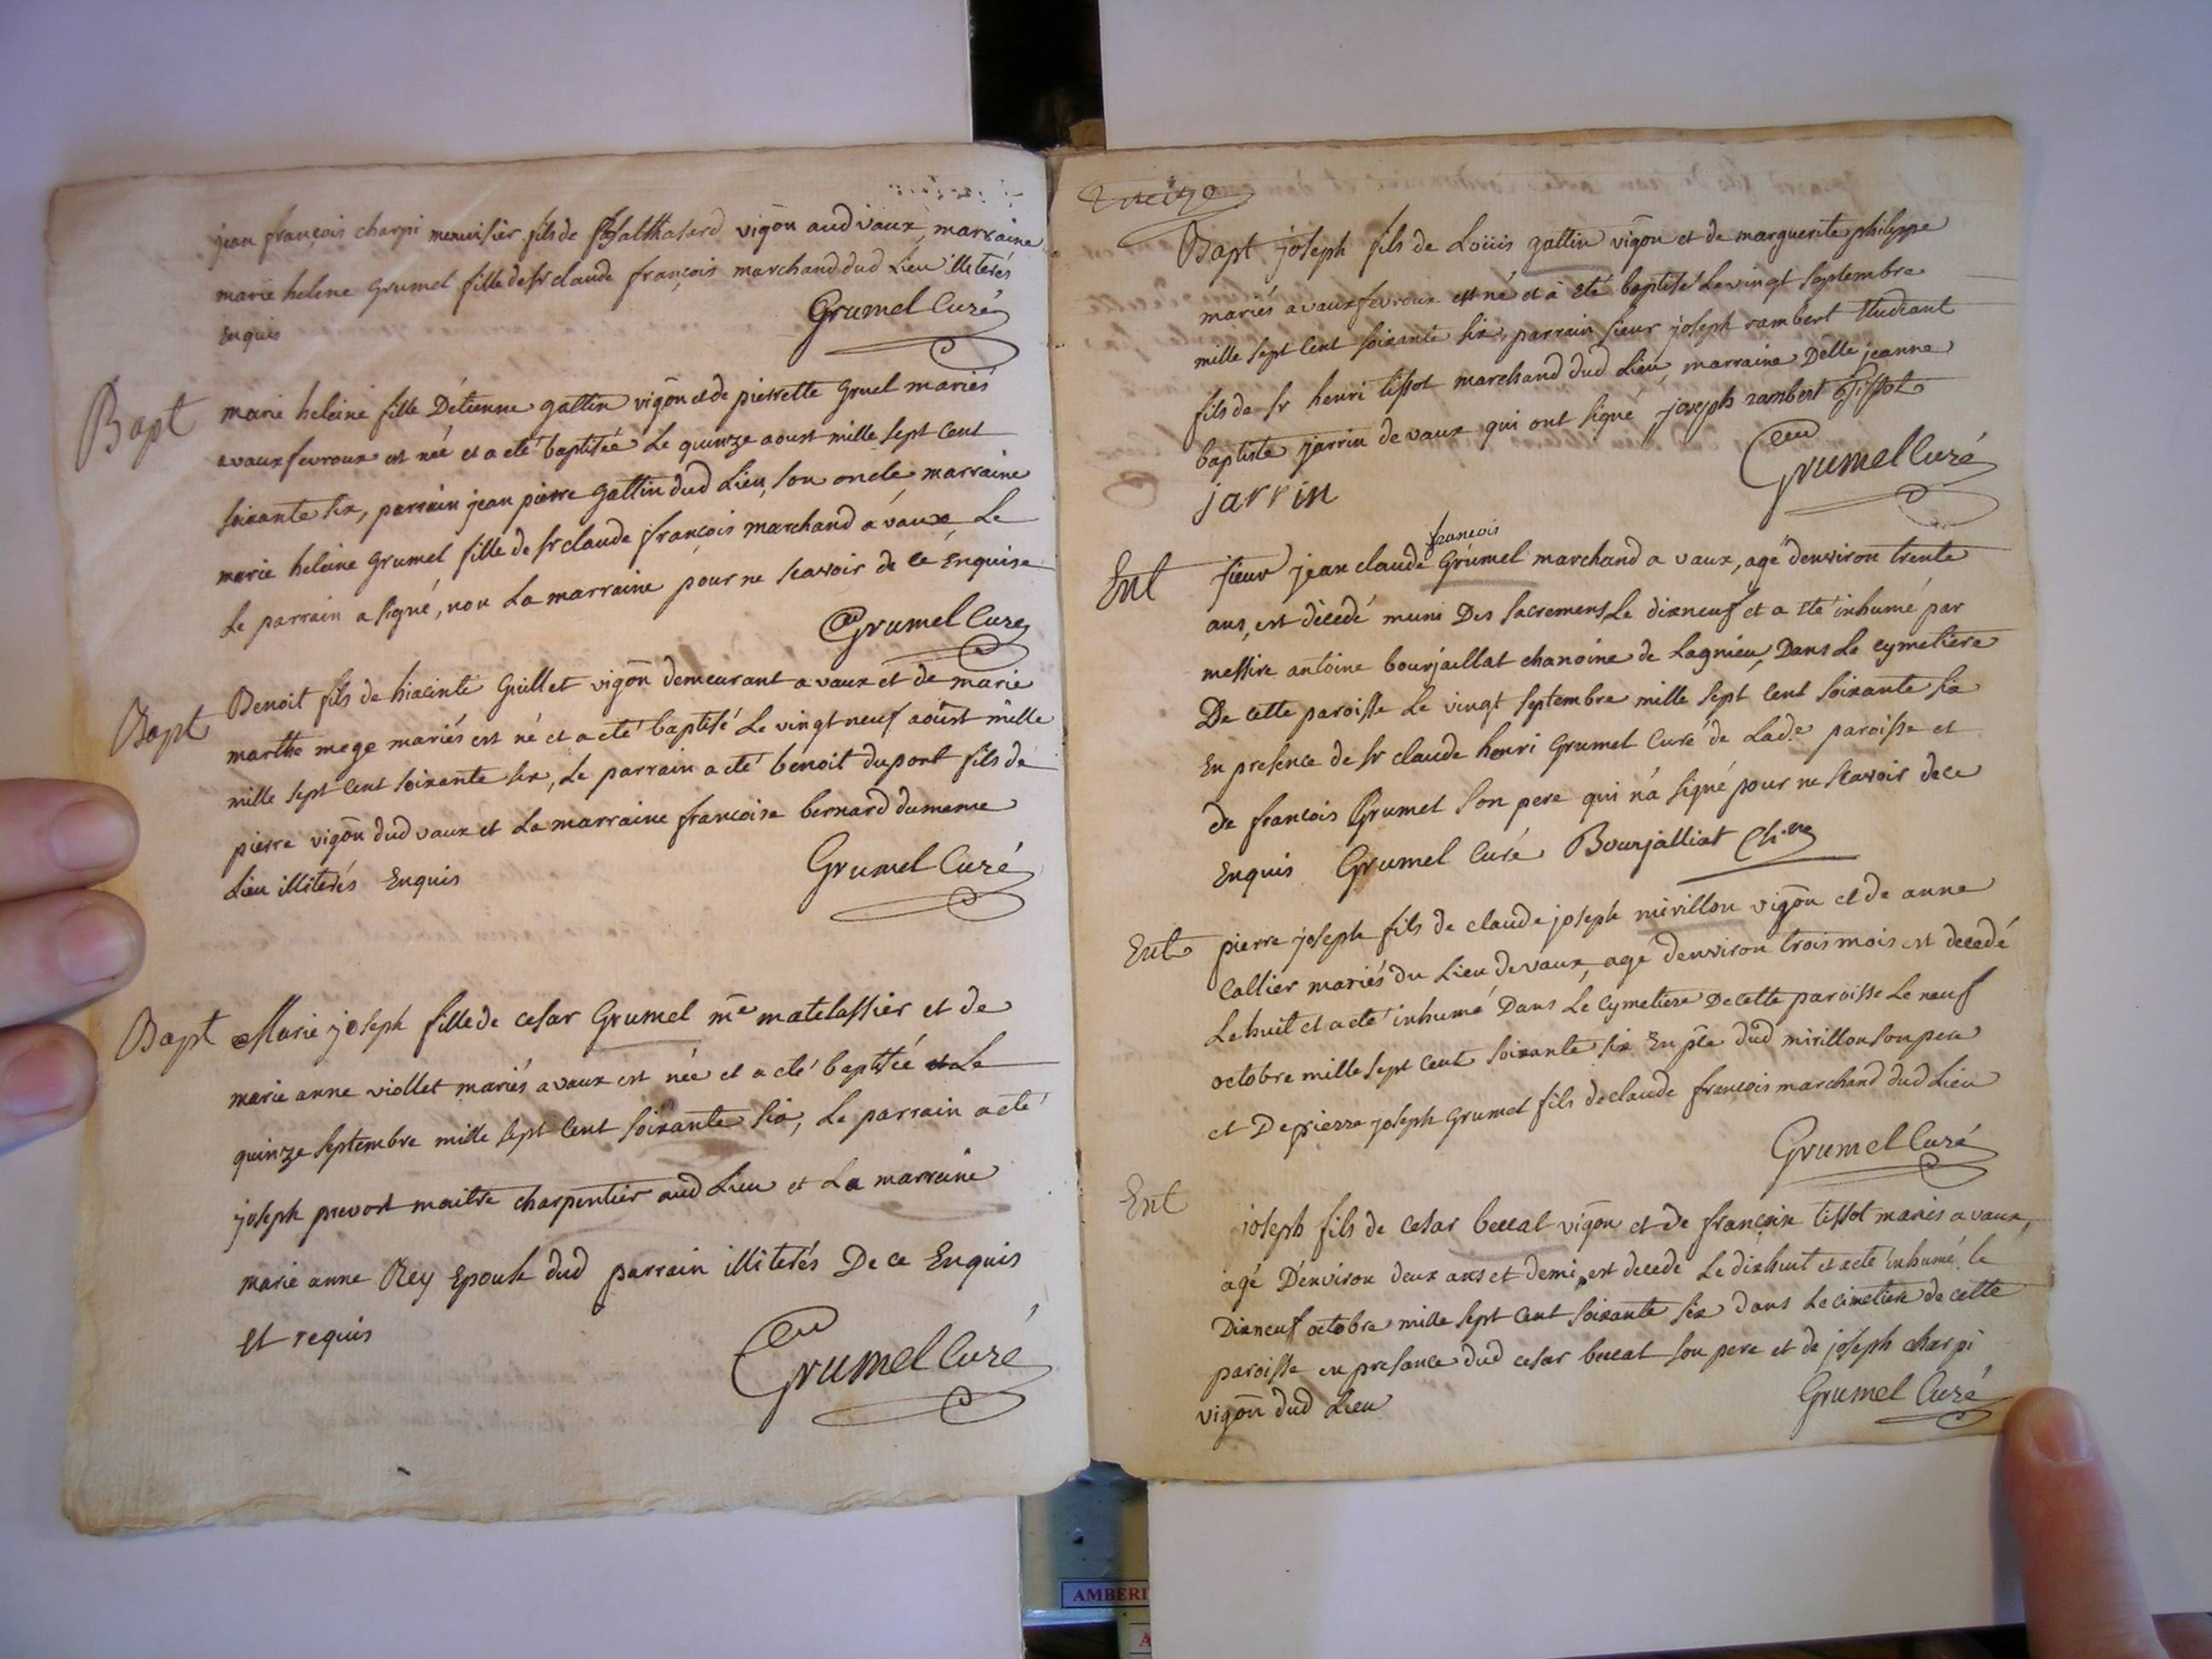 jean françois charpi menuisier fils de Balthasard vigōn aud vaux, marraine
marie helene Grumel fille de sr claude françois marchand dud Lieu illiterés
enquis
Grumel Curé
Bapt
marie heleine fille D'étienne gallin vigōn et de pierrette Gruel mariés
a vaux fevroux est née et a eté baptisée Le quinze aoust mille sept Cent
soixante six, parrain jean pierre Gallin dud Lieu, son oncle, marraine
marie heleine Grumel fille de sr claude françois marchand a vaux, Le
Le parrain a signé, non La marraine pour ne scavoir de ce Enquise
Grumel Curé
Bapt
Benoit fils de hiacinte Guillet vigōn demeurant a vaux et de marie
marthe mege mariés est né et a eté baptisé Le vingt neuf aoust mille
mille sept Cent soixante six, Le parrain a eté benoit dupont fils de
pierre vigōn dud vaux et La marraine francoise bernard du meme
Lieu illiterés Enquis
Grumel Curé
Bapt
Marie joseph fille de cesar Grumel mē matelassier et de
marie anne viollet mariés a vaux est née et a eté baptisée Le
quinze septembre mille sept Cent soixante six, Le parrain a eté
joseph prevost maitre charpentier aud Lieu et La marraine
marie anne Rey Epouse dud parrain illiterés De ce Enquis
et requis
Grumel Curé
Bapt joseph fils de Loüis gallin vigōn et de marguerite philippe
mariés a vaux fevroux est né et à eté baptisé Le vingt septembre
mille sept Cent soixante six, parrain sieur joseph rambert Etudiant
fils de sr henri tissot marchand dud Lieu, marraine Delle jeanne
baptiste jarrin de vaux qui ont signé joseph rambert Tissot
jarrin
Grumel Curé
Ent
francois
sieur jean claude Grumel marchand a vaux, agé d'environ trente
ans, est décedé muni Des sacremens Le dixneuf et a eté inhumé par
messire antoine bourjaillat chanoine de Lagnieu, Dans Le cymetiere
De cette paroisse Le vingt septembre mille sept Cent soixante six
En presence de sr claude henri Grumel Curé de Lad.e paroisse et
de francois Grumel son pere qui n'a signé pour ne scavoir de ce
Enquis Grumel Curé Bourjalliat Ch.ne
Ent
pierre joseph fils de claude joseph mirillon vigōn et de anne
Callier mariés du Lieu de vaux, agé d'environ trois mois est decedé
Le huit et a eté inhumé Dans Le Cymetiere De cette paroisse Le neuf
octobre mille sept Cent soixante six En pñe dud mirillon son pere
et De pierre joseph Grumel fils de claude francois marchand dud Lieu
Grumel Curé
Ent
joseph fils de Cesar beccat vigōn et de françoise tissot mariés a vaux,
agé D'environ deux ans et demi, est decedé Le dixhuit et a eté inhumé le
Dixneuf octobre mille sept Cent soixante six dans Le cimetiere de cette
paroisse en presance dud cesar beccat son pere et de joseph charpi
vigōn dud Lieu
Grumel Curé
AMBERI